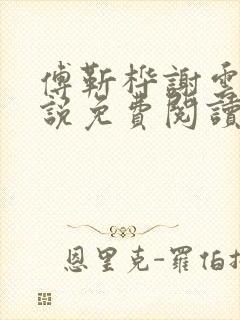 傅靳桦謝雲
說免費閱讀
恩里克-羅伯托